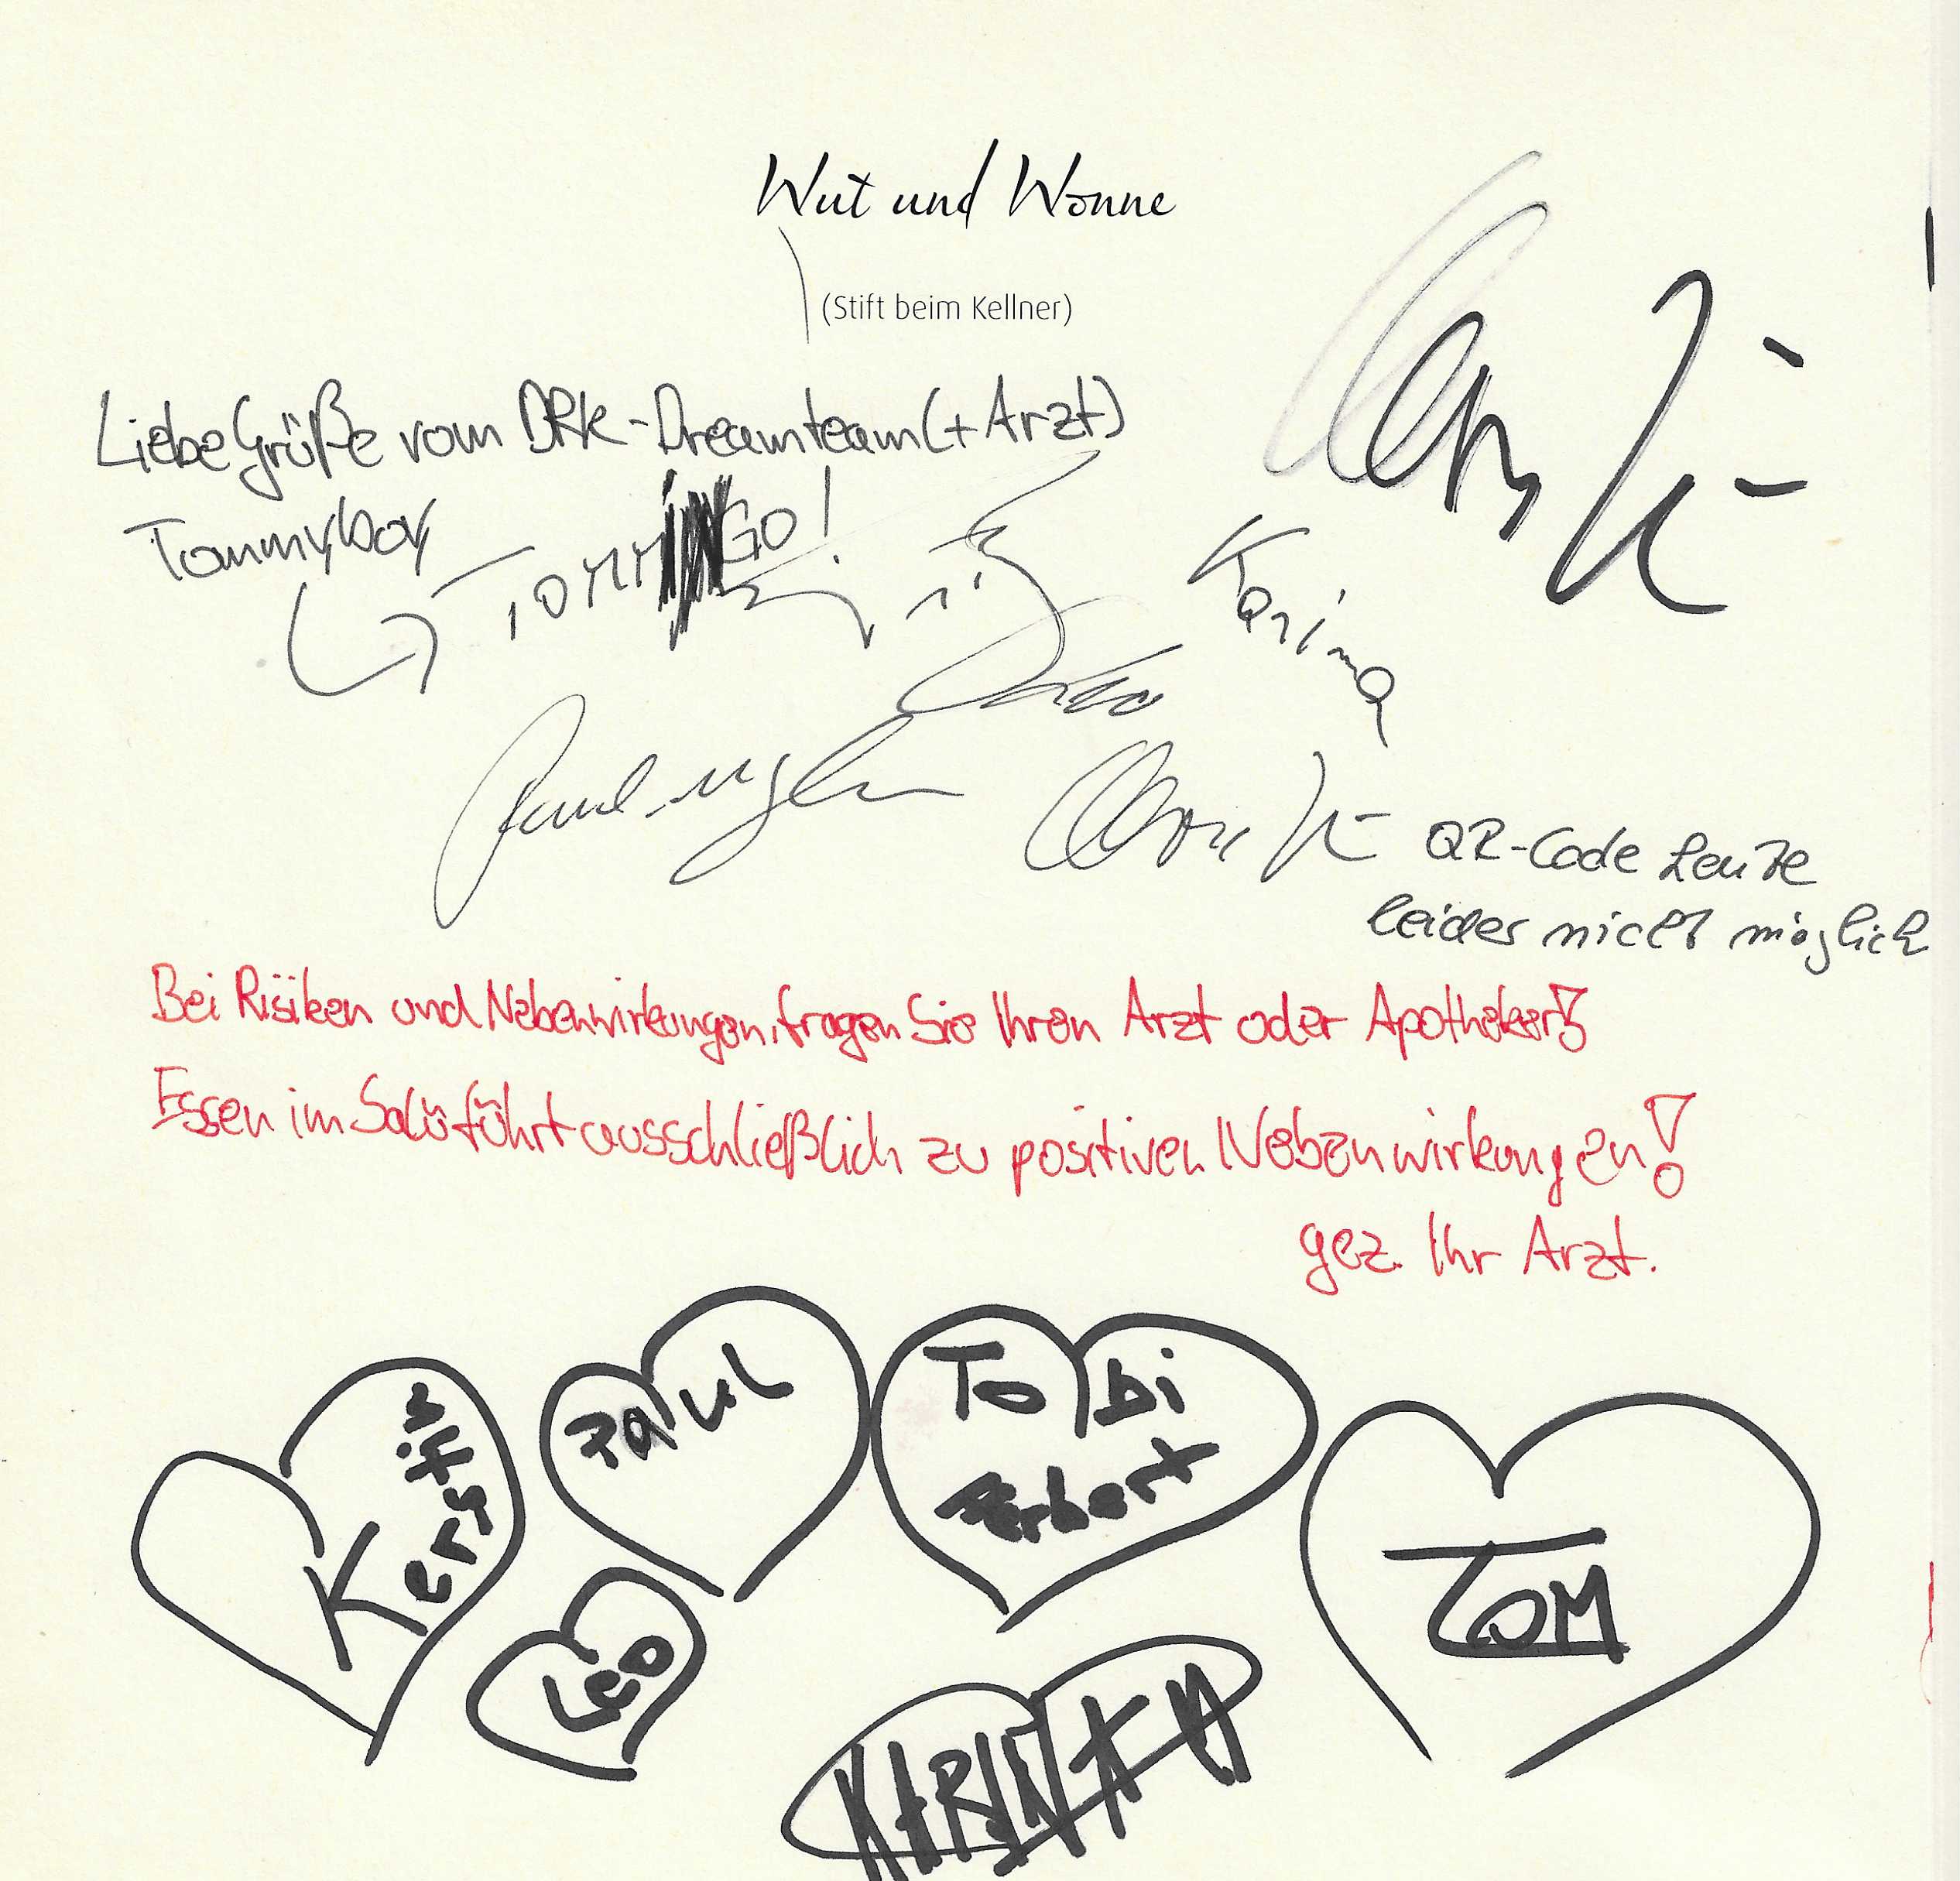 Wut und Wonne
(Stift beim Kellner)
Liebe Grüße vom DRK-Dreamteam (+ Arzt)
Tommyboy
GO!
Karina
QR-Code heute
leider nicht möglich
Bei Risiken und Nebenwirkungen, fragen Sie Ihren Arzt oder Apotheker!
Essen im Salü führt ausschließlich zu positiven Nebenwirkungen!
gez. Ihr Arzt.
Kerstin
Paul
Tobi
Herbert
Leo
TOM